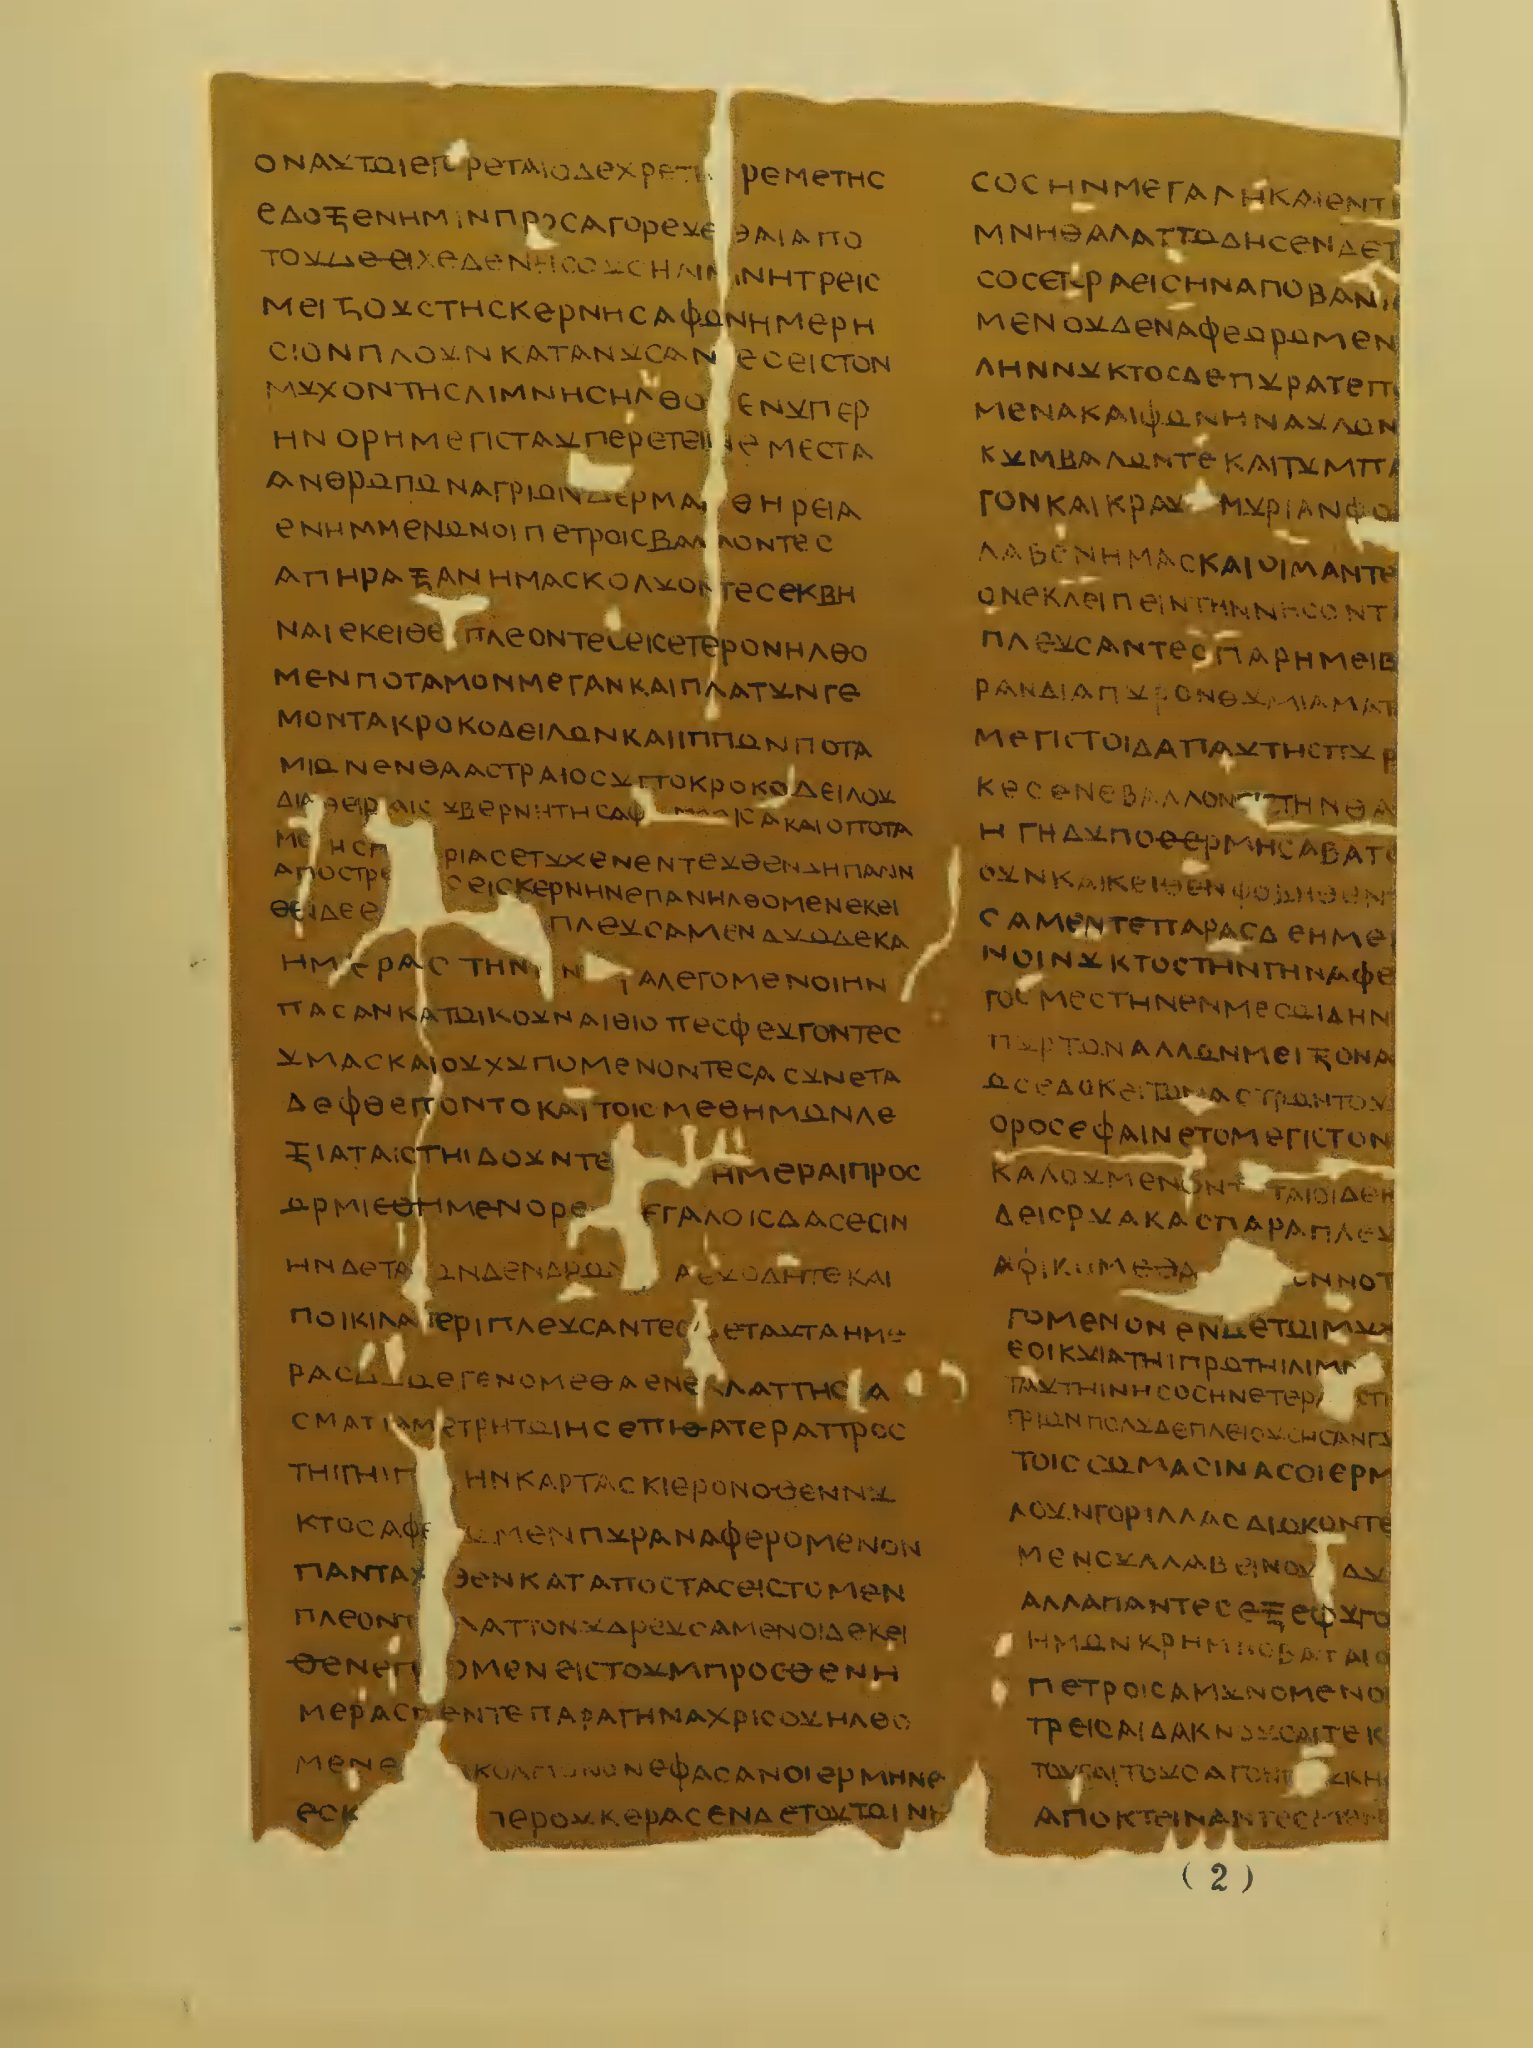 ΟΝΑΥΤΩΙΕΠ ΡΕΤΑΙΟΔΕΧΡΕΤ ΡΕΜΕΤΗϹ
ΕΔΟΞΕΝΗΜΙΝΠΡΟϹΑΓΟΡΕΥΕ ΘΑΙΑΠΟ
ΤΟΥΔΕΕΙΧΕΔΕΝΗϹΟΥϹΗΛΙΜΝΗΤΡΕΙϹ
ΜΕΙΖΟΥϹΤΗϹΚΕΡΝΗϹΑΦΩΝΗΜΕΡΗ
ϹΙΟΝΠΛΟΥΝΚΑΤΑΝΥϹΑΝ ΕϹΕΙϹΤΟΝ
ΜΥΧΟΝΤΗϹΛΙΜΝΗϹΗΛΘΟ ΕΝΥΠΕΡ
ΗΝΟΡΗΜΕΓΙϹΤΑΥΠΕΡΕΤΕΙΝΕΜΕϹΤΑ
ΑΝΘΡΩΠΩΝΑΓΡΙΩΝΔΕΡΜΑ ΘΗΡΕΙΑ
ΕΝΗΜΜΕΝΩΝΟΙΠΕΤΡΟΙϹΒΑΛΛΟΝΤΕϹ
ΑΠΗΡΑΞΑΝΗΜΑϹΚΟΛΥΟΝΤΕϹΕΚΒΗ
ΝΑΙΕΚΕΙΘΕ ΠΛΕΟΝΤΕϹΕΙϹΕΤΕΡΟΝΗΛΘΟ
ΜΕΝΠΟΤΑΜΟΝΜΕΓΑΝΚΑΙΠΛΑΤΥΝΓΕ
ΜΟΝΤΑΚΡΟΚΟΔΕΙΛΩΝΚΑΙΙΠΠΩΝΠΟΤΑ
ΜΙΩΝΕΝΘΑΑϹΤΡΑΙΟϹΥΠΤΟΚΡΟΚΟΔΕΙΛΟΥ
ΔΙΑ ΘΕΙΡ ΑΙϹ ΥΒΕΡΝΗΤΗϹΑΦ ΙϹΑΚΑΙΟΠΟΤΑ
ΜΟ ΗϹΠ ΡΙΑϹΕΤΥΧΕΝΕΝΤΕΥΘΕΝΔΗΠΑΛΙΝ
ΑΠΟϹΤΡΕ ϹΕΙϹΚΕΡΝΗΝΕΠΑΝΗΛΘΟΜΕΝΕΚΕΙ
ΘΕΙΔΕΕ ΠΛΕΥϹΑΜΕΝΔΥΩΔΕΚΑ
ΗΜΕΡΑϹΤΗΝ Ν ΑΛΕΓΟΜΕΝΟΙΗΝ
ΠΑϹΑΝΚΑΤΩΙΚΟΥΝΑΙΘΙΟΠΕϹΦΕΥΓΟΝΤΕϹ
ΥΜΑϹΚΑΙΟΥΧΥΠΟΜΕΝΟΝΤΕϹΑϹΥΝΕΤΑ
ΔΕΦΘΕΠΟΝΤΟΚΑΙΤΟΙϹΜΕΘΗΜΩΝΛΕ
ΞΙΑΤΑΙϹΤΗΙΔΟΥΝΤΕ ΗΜΕΡΑΙΠΡΟϹ
ΩΡΜΙϹΘΗΜΕΝΟΡΕ ΕΓΑΛΟΙϹΔΑϹΕϹΙΝ
ΗΝΔΕΤΑ ΩΝΔΕΝΔΡΩ Α ΕΥΩΔΗΤΕΚΑΙ
ΠΟΙΚΙΛΑ ΠΕΡΙΠΛΕΥϹΑΝΤΕϹ ΕΤΑΥΤΑΗΜΕ
ΡΑϹΔΥΩΕΓΕΝΟΜΕΘΑΕΝΕ ΛΑΤΤΗϹ Α
ϹΜΑΤΙΑΜΕΤΡΗΤΩΙΗϹΕΠΙΘΑΤΕΡΑΠΡΟϹ
ΤΗΙΓΗΙΠ ΗΝΚΑΡΤΑϹΚΙΕΡΟΝΟΘΕΝΝΥ
ΚΤΟϹΑΦΕ ΜΕΝΠΥΡΑΝΑΦΕΡΟΜΕΝΟΝ
ΠΑΝΤΑΧ ΘΕΝΚΑΤΑΠΟϹΤΑϹΕΙϹΤΟΜΕΝ
ΠΛΕΟΝΤ ΛΑΤΤΟΝΥΔΡΕΥϹΑΜΕΝΟΙΔΕΚΕΙ
ΘΕΝΕΠ ΟΜΕΝΕΙϹΤΟΥΜΠΡΟϹΘΕΝΗ
ΜΕΡΑϹΠΕΝΤΕΠΑΡΑΓΗΝΑΧΡΙϹΟΥΗΛΘΟ
ΜΕΝΕ ΚΟΛΠΟΝΟΝΕΦΑϹΑΝΟΙΕΡΜΗΝΕ
ΕϹΚ ΠΕΡΟΥΚΕΡΑϹΕΝΔΕΤΟΥΤΩΙΝΗ
ϹΟϹΗΝΜΕΓΑΛΗΚΑΙΕΝΤ
ΜΝΗΘΑΛΑΤΤΩΔΗϹΕΝΔΕΤ
ϹΟϹΕΤΕΡΑΕΙϹΗΝΑΠΟΒΑΝ
ΜΕΝΟΥΔΕΝΑΦΕΩΡΩΜΕΝ
ΛΗΝΝΥΚΤΟϹΔΕΠΥΡΑΤΕΠ
ΜΕΝΑΚΑΙΦΩΝΗΝΑΥΛΩΝ
ΚΥΜΒΑΛΩΝΤΕΚΑΙΤΥΜΠΑ
ΓΟΝΚΑΙΚΡΑΥ ΜΥΡΙΑΝΦΟ
ΛΑΒΕΝΗΜΑϹΚΑΙΟΙΜΑΝΤΕ
ΟΝΕΚΛΕΙΠΕΙΝΤΗΝΝΗϹΟΝΤ
ΠΛΕΥϹΑΝΤΕϹΠΑΡΗΜΕΙΒ
ΡΑΝΔΙΑΠΥΡΟΝΘΥΜΙΑΜΑΤ
ΜΕΓΙϹΤΟΙΔΑΠΑΥΤΗϹΠΥΡ
ΚΕϹΕΝΕΒΑΛΛΟΝΕΙϹΤΗΝΘΑ
ΗΓΗΔΥΠΟΘΕΡΜΗϹΑΒΑΤΟ
ΟΥΝΚΑΙΚΕΙΘΕΝΦΟΒΗΘΕΝ
ϹΑΜΕΝΤΕΤΤΑΡΑϹΔΕΗΜΕ
ΝΟΙΝΥΚΤΟϹΤΗΝΓΗΝΑΦΕ
ΓΟϹΜΕϹΤΗΝΕΝΜΕϹΩΙΔΗΝ
ΠΥΡΤΩΝΑΛΛΩΝΜΕΙΖΟΝΑ
ΩϹΕΔΟΚΕΙΤΩΝΑϹΤΡΩΝΤΟΥ
ΟΡΟϹΕΦΑΙΝΕΤΟΜΕΓΙϹΤΟΝ
ΚΑΛΟΥΜΕΝΟΝΤ ΤΑΙΟΙΔΕΚ
ΔΕΙϹΡΥΑΚΑϹΠΑΡΑΠΛΕΥ
ΑΦΙΚΟΜΕΘΑ ΟΝΝΟΤ
ΓΟΜΕΝΟΝΕΝΔΕΤΩΙΜΥΧ
ΕΟΙΚΥΙΑΤΗΙΠΡΩΤΗΙΛΙΜΝ
ΤΑΥΤΗΙΝΗϹΟϹΗΝΕΤΕΡΑ ϹΤ
ΓΡΙΩΝΠΟΛΥΔΕΠΛΕΙΟΥϹΗϹΑΝΓΥ
ΤΟΙϹϹΩΜΑϹΙΝΑϹΟΙΕΡΜ
ΛΟΥΝΓΟΡΙΛΛΑϹΔΙΩΚΟΝΤΕ
ΜΕΝϹΥΛΛΑΒΕΙΝΟΥ ΔΥ
ΑΛΛΑΠΑΝΤΕϹΕΞΕΦΥΓΟ
ΗΜΩΝΚΡΗΜΝΟΒΑΤΑΙΟ
ΠΕΤΡΟΙϹΑΜΥΝΟΜΕΝΟ
ΤΡΕΙϹΑΙΔΑΚΝΟΥϹΑΙΤΕΚ
ΤΟΥϹΑΙΤΟΥϹΑΓΟΝΤ ΥΚΗ
ΑΠΟΚΤΕΙΝΑΝΤΕϹΜΕΝ
(2)